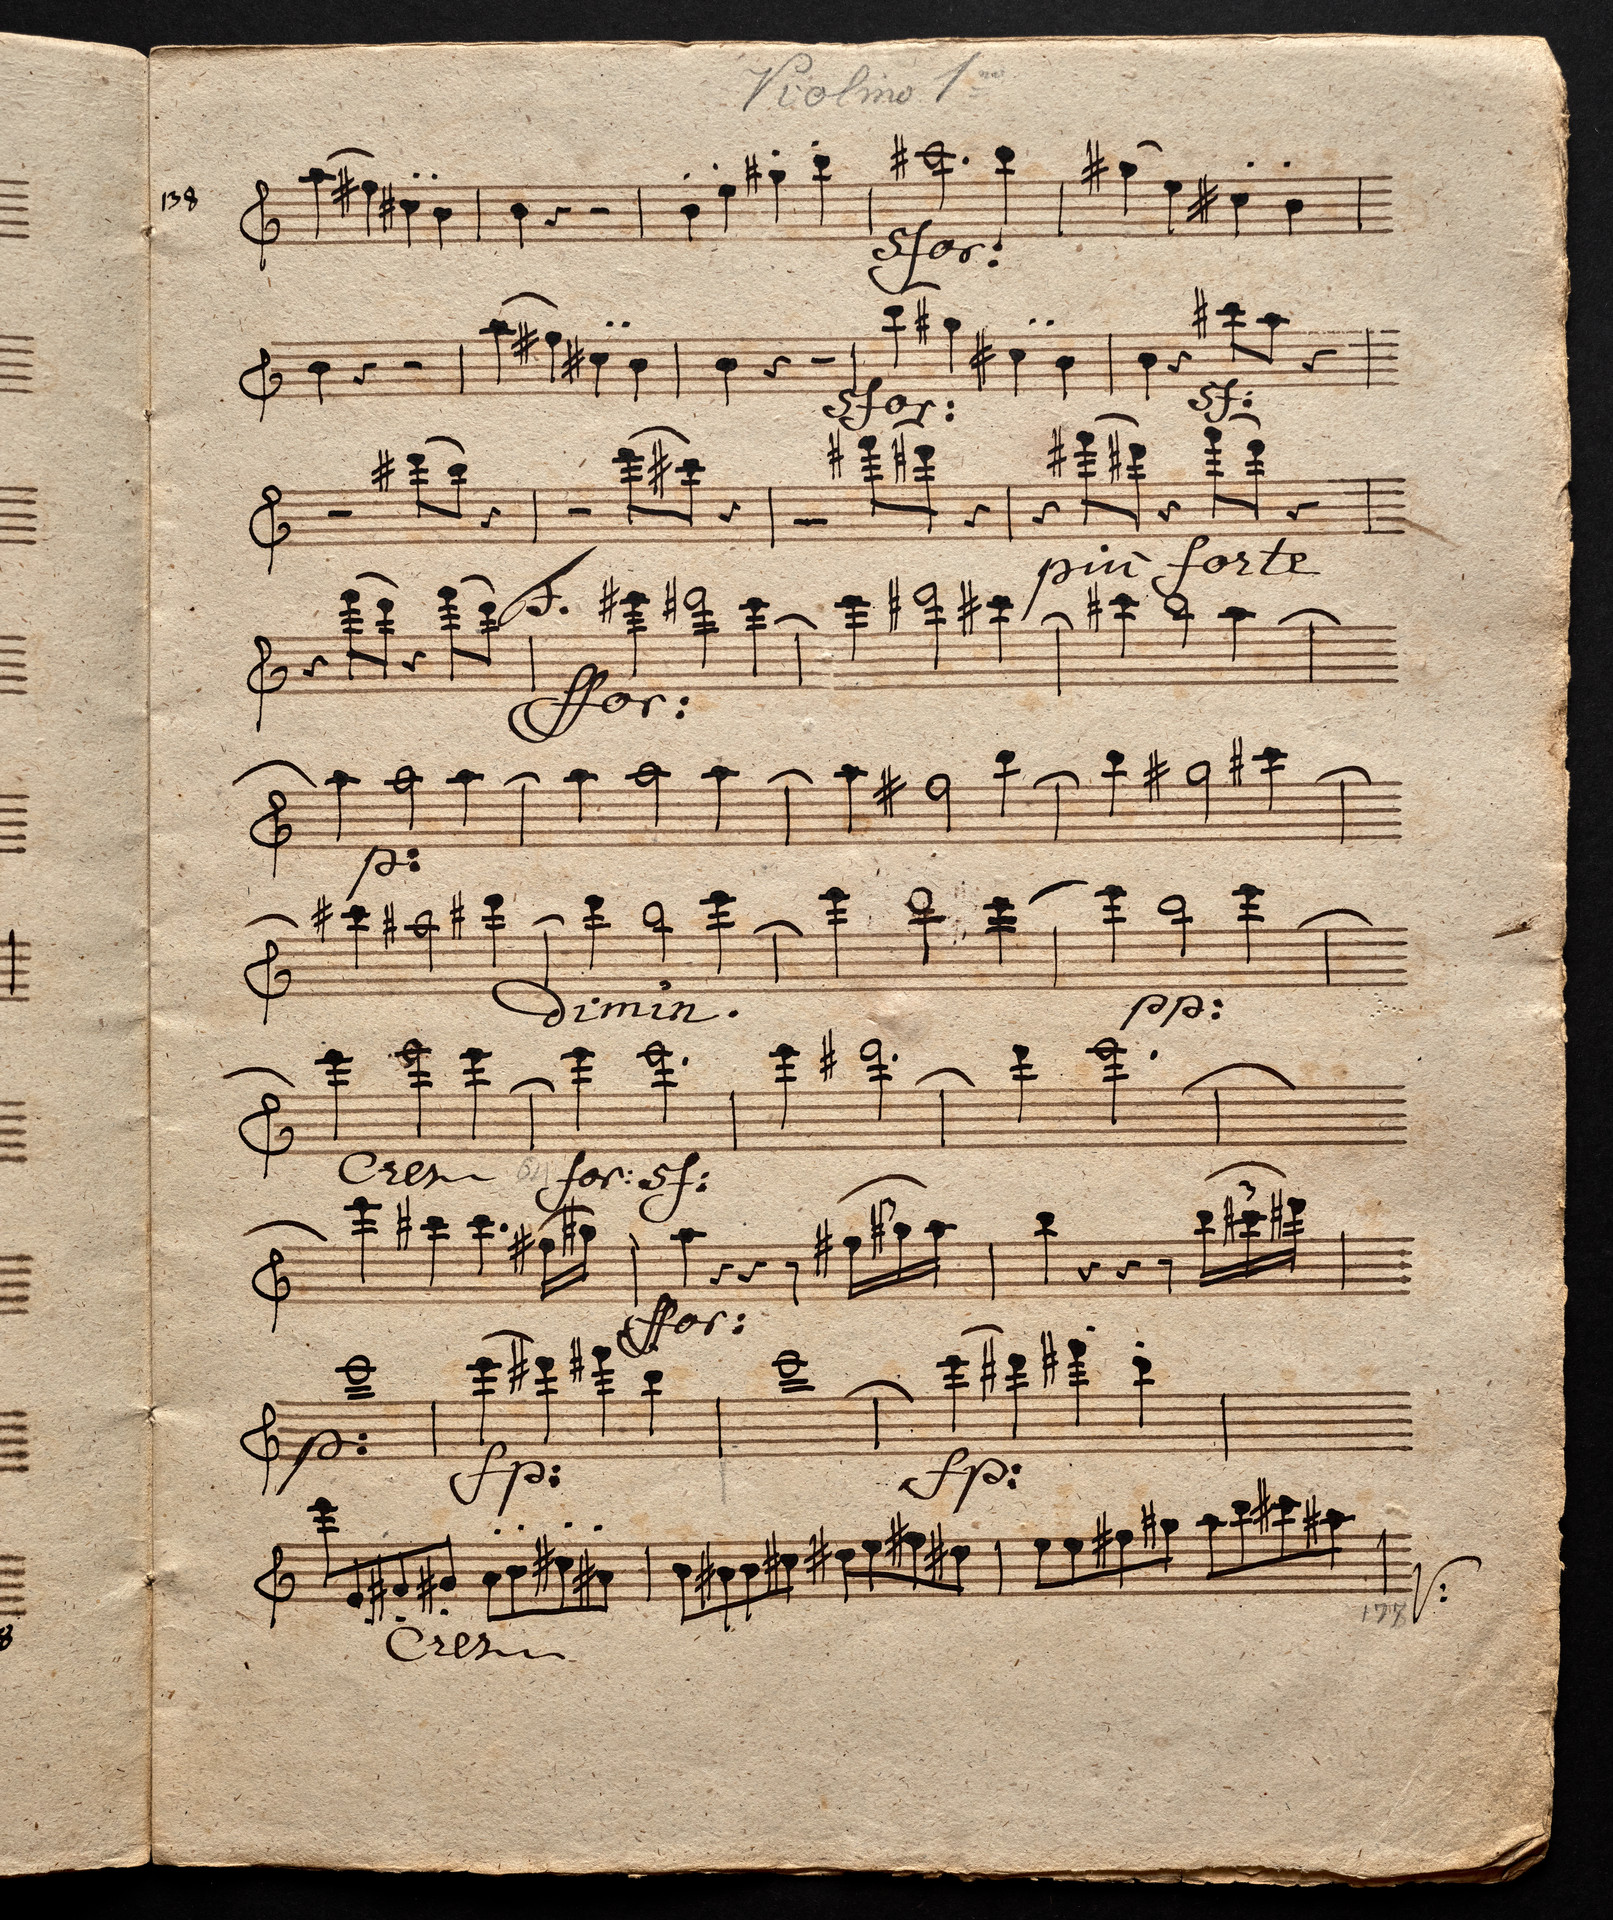 Violino 1mo
138
sfor:
sfor: sf:
più forte
ffor:
p:
dimin. pp:
Cres for: sf:
3
ffor:
p: fp: fp:
Cres
177 V:
8